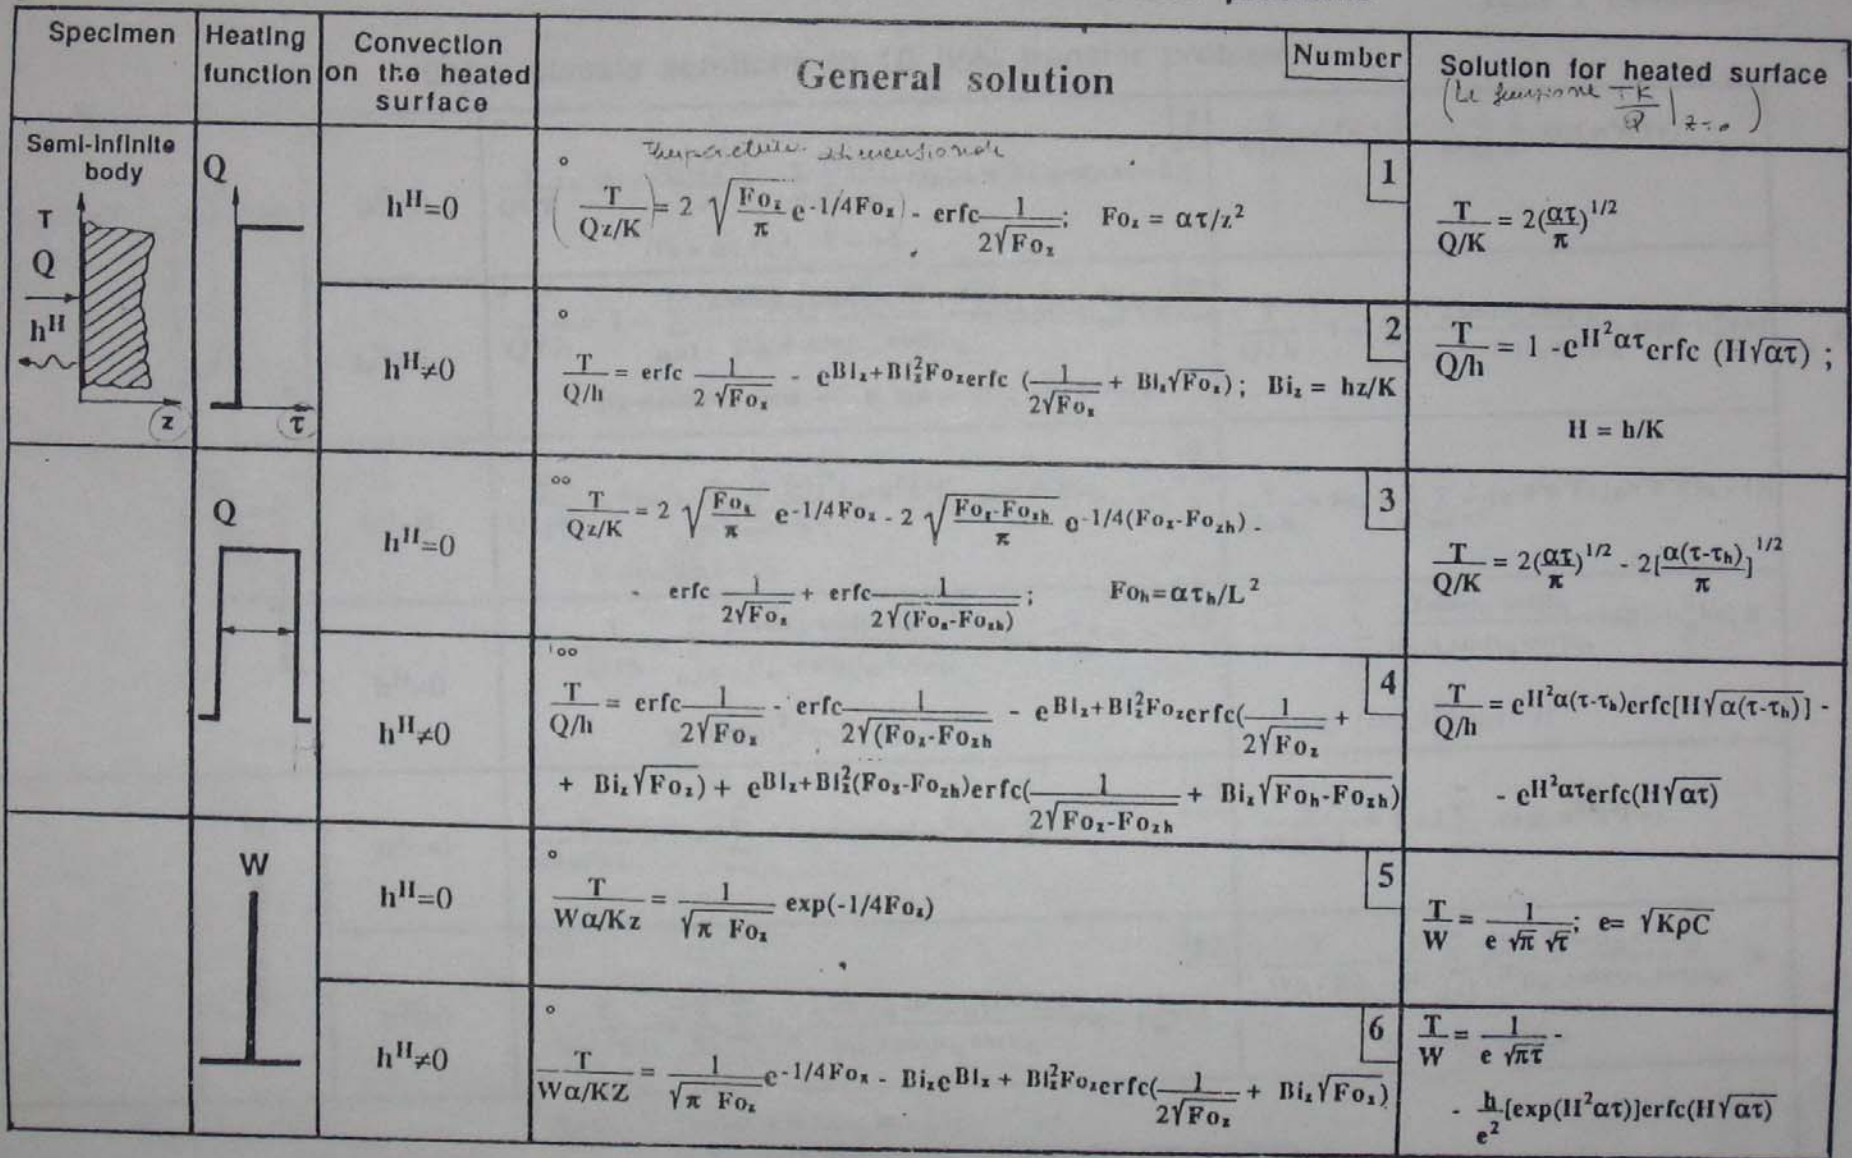 Specimen
Heating function
Convection on the heated surface
General solution
Number
Solution for heated surface
TK/Q |z=0
Semi-infinite body
T
Q
h^H
z
Q
τ
h^H=0
°
T/(Qz/K) = 2 √(Fo_z/π) e^-1/4Fo_z - erfc 1/(2√Fo_z); Fo_z = ατ/z²
1
T/(Q/K) = 2(ατ/π)^1/2
h^H≠0
°
T/(Q/h) = erfc 1/(2√Fo_z) - e^Bi_z+Bi_z²Fo_z erfc (1/(2√Fo_z) + Bi_z√Fo_z); Bi_z = hz/K
2
T/(Q/h) = 1 - e^H²ατ erfc (H√ατ) ;
H = h/K
Q
h^H=0
°°
T/(Qz/K) = 2 √(Fo_z/π) e^-1/4Fo_z - 2 √((Fo_z-Fo_zh)/π) e^-1/4(Fo_z-Fo_zh) -
- erfc 1/(2√Fo_z) + erfc 1/(2√(Fo_z-Fo_zh)) ; Fo_h=ατ_h/L²
3
T/(Q/K) = 2(ατ/π)^1/2 - 2[α(τ-τ_h)/π]^1/2
h^H≠0
°°
T/(Q/h) = erfc 1/(2√Fo_z) - erfc 1/(2√(Fo_z-Fo_zh) - e^Bi_z+Bi_z²Fo_z erfc(1/(2√Fo_z) +
+ Bi_z√Fo_z) + e^Bi_z+Bi_z²(Fo_z-Fo_zh) erfc(1/(2√Fo_z-Fo_zh) + Bi_z√Fo_h-Fo_zh)
4
T/(Q/h) = e^H²α(τ-τ_h) erfc[H√α(τ-τ_h)] -
- e^H²ατ erfc(H√ατ)
W
h^H=0
°
T/(Wα/Kz) = 1/(√π Fo_z) exp(-1/4Fo_z)
5
T/W = 1/(e √π √τ); e= √KρC
h^H≠0
°
T/(Wα/KZ) = 1/(√π Fo_z) e^-1/4Fo_z - Bi_z e^Bi_z + Bi_z²Fo_z erfc(1/(2√Fo_z) + Bi_z√Fo_z)
6
T/W = 1/(e √πτ) -
- h/e² [exp(H²ατ)]erfc(H√ατ)